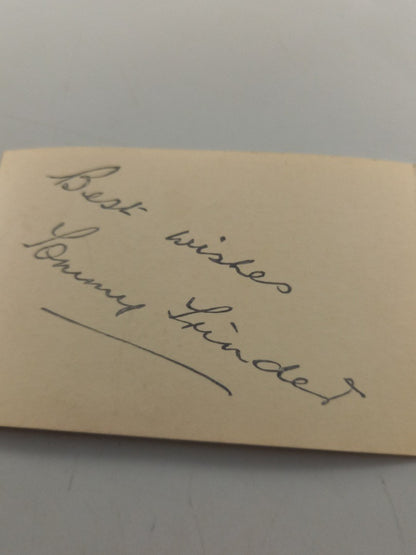 Best wishes
Tommy Trinder